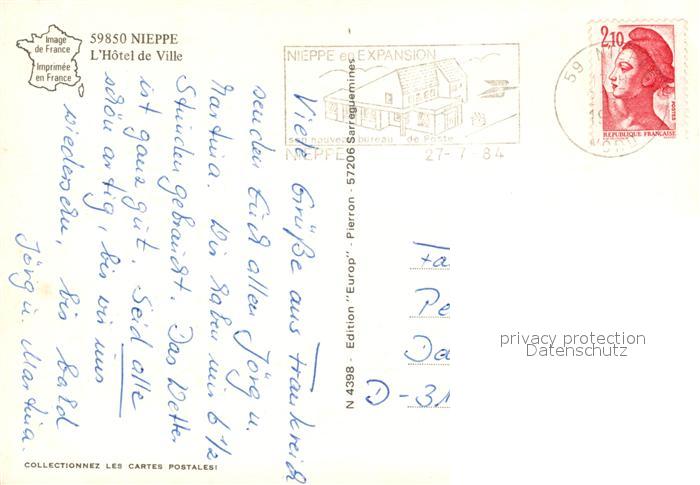 Image
de France
Imprimée
en France
59850 NIEPPE
L'Hôtel de Ville
NIEPPE en EXPANSION
son nouveau bureau de Poste
NIEPPE 27-7 84
59 N
19
NORD
2,10
POSTES
REPUBLIQUE FRANÇAISE
Viele Grüße aus Frankreich
senden Euch allen Jörg u.
Martina. Wir haben nur 6 1/2
Stunden gebraucht. Das Wetter
ist ganz gut. Seid alle
schön artig, bis wir uns
wiedersehn, bis bald
Jörg u. Martina.
N 4398 - Edition "Europ" - Pierron - 57206 Sarreguemines
Fa
Pe
Da
D-31
privacy protection
Datenschutz
COLLECTIONNEZ LES CARTES POSTALES!